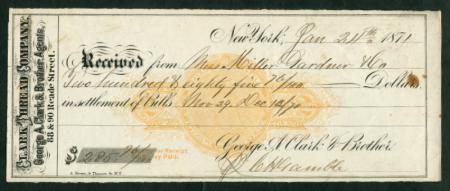 CLARK THREAD COMPANY,
George A. Clark & Brother, Agents,
88 & 90 Reade Street.
New York, Jan 24th 1871
Received from Mess Miller Gardner & Co
Two hundred & eighty five 76/100 Dollars
in settlement of Bills Nov 29. Dec 12/70
George A. Clark & Brother
$ 285 76/100